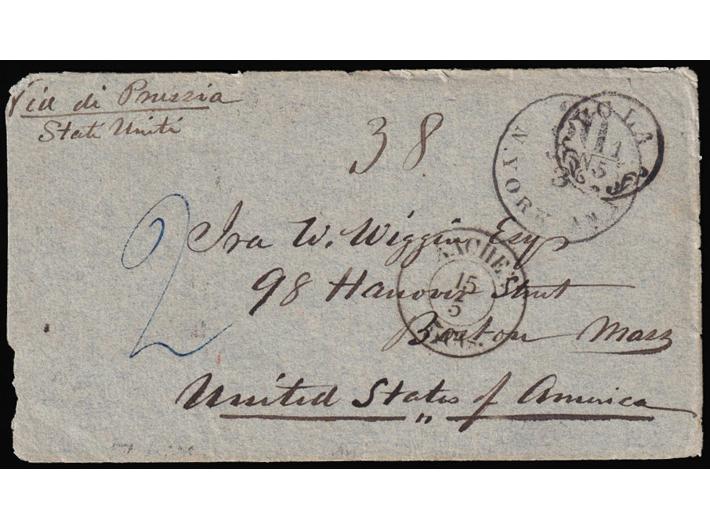 Via di Prussia
Stati Uniti
38
2
Ira W. Wiggin Esqr
98 Hanover Street
Boston Mass
United States of America
N. YORK AM.
POLA
AACHEN
15
5